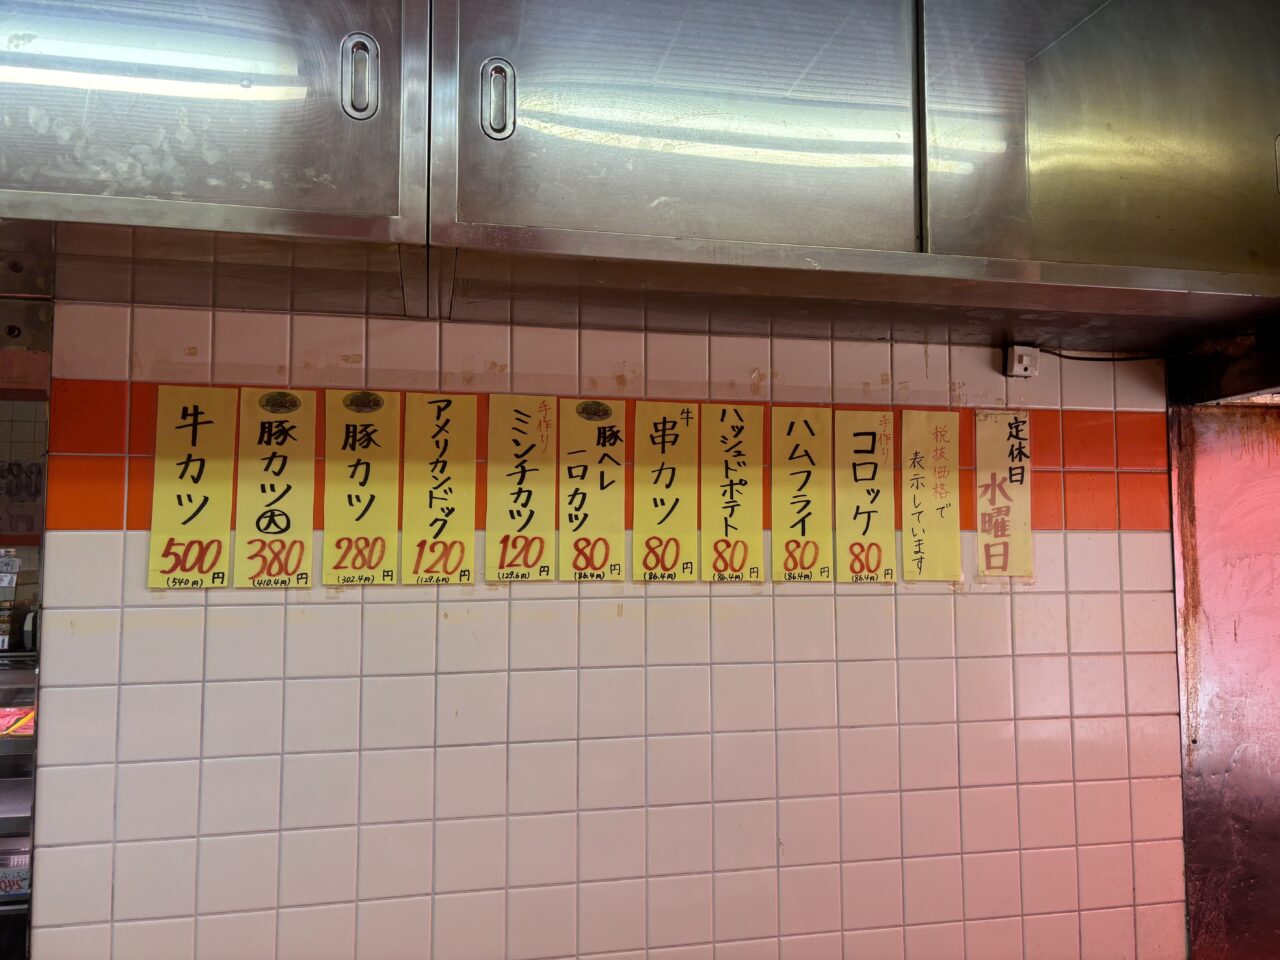 定休日
水曜日
税抜価格で
表示しています
手作り
コロッケ
80円
(86.4円)
ハムフライ
80円
(86.4円)
ハッシュドポテト
80円
(86.4円)
牛
串カツ
80円
(86.4円)
豚ヘレ
一口カツ
80円
(86.4円)
手作り
ミンチカツ
120円
(129.6円)
アメリカンドッグ
120円
(129.6円)
豚カツ
280円
(302.4円)
豚カツ大
380円
(410.4円)
牛カツ
500円
(540円)